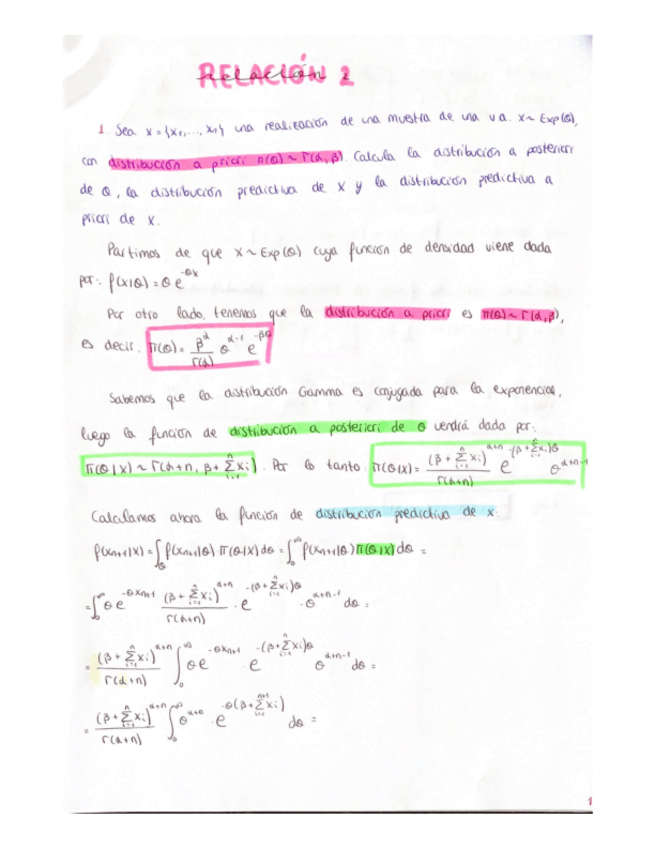 RELACIÓN 2
relación 2
1. Sea x = {x₁,..., xₙ} una realización de una muestra de una v.a. x ~ Exp(θ),
con distribución a priori π(θ) ~ Γ(α, β). Calcula la distribución a posteriori
de θ, la distribución predictiva de x y la distribución predictiva a
priori de x.
Partimos de que x ~ Exp(θ) cuya función de densidad viene dada
por: f(x|θ) = θ e^{-θx}
Por otro lado, tenemos que la distribución a priori es π(θ) ~ Γ(α, β),
es decir, π(θ) = β^α / Γ(α) θ^{α-1} e^{-βθ}
Sabemos que la distribución Gamma es conjugada para la exponencial,
luego la función de distribución a posteriori de θ vendrá dada por:
π(θ|x) ~ Γ(α+n, β+ Σ_{i=1}^{n} xᵢ). Por lo tanto: π(θ|x) = (β + Σ_{i=1}^{n} xᵢ)^{α+n} / Γ(α+n) e^{-(β+Σ_{i=1}^{n} xᵢ)θ} θ^{α+n-1}
Calculamos ahora la función de distribución predictiva de x.
f(xₙ₊₁|x) = ∫_θ f(xₙ₊₁|θ) π(θ|x) dθ = ∫_0^∞ f(xₙ₊₁|θ) π(θ|x) dθ =
= ∫_0^∞ θ e^{-θxₙ₊₁} (β + Σ_{i=1}^{n} xᵢ)^{α+n} / Γ(α+n) · e^{-(β+Σ_{i=1}^{n} xᵢ)θ} · θ^{α+n-1} dθ =
= (β + Σ_{i=1}^{n} xᵢ)^{α+n} / Γ(α+n) ∫_0^∞ θ e^{-θxₙ₊₁} e^{-(β+Σ_{i=1}^{n} xᵢ)θ} θ^{α+n-1} dθ =
= (β + Σ_{i=1}^{n} xᵢ)^{α+n} / Γ(α+n) ∫_0^∞ θ^{α+n} · e^{-θ(β+Σ_{i=1}^{n+1} xᵢ)} dθ =
1